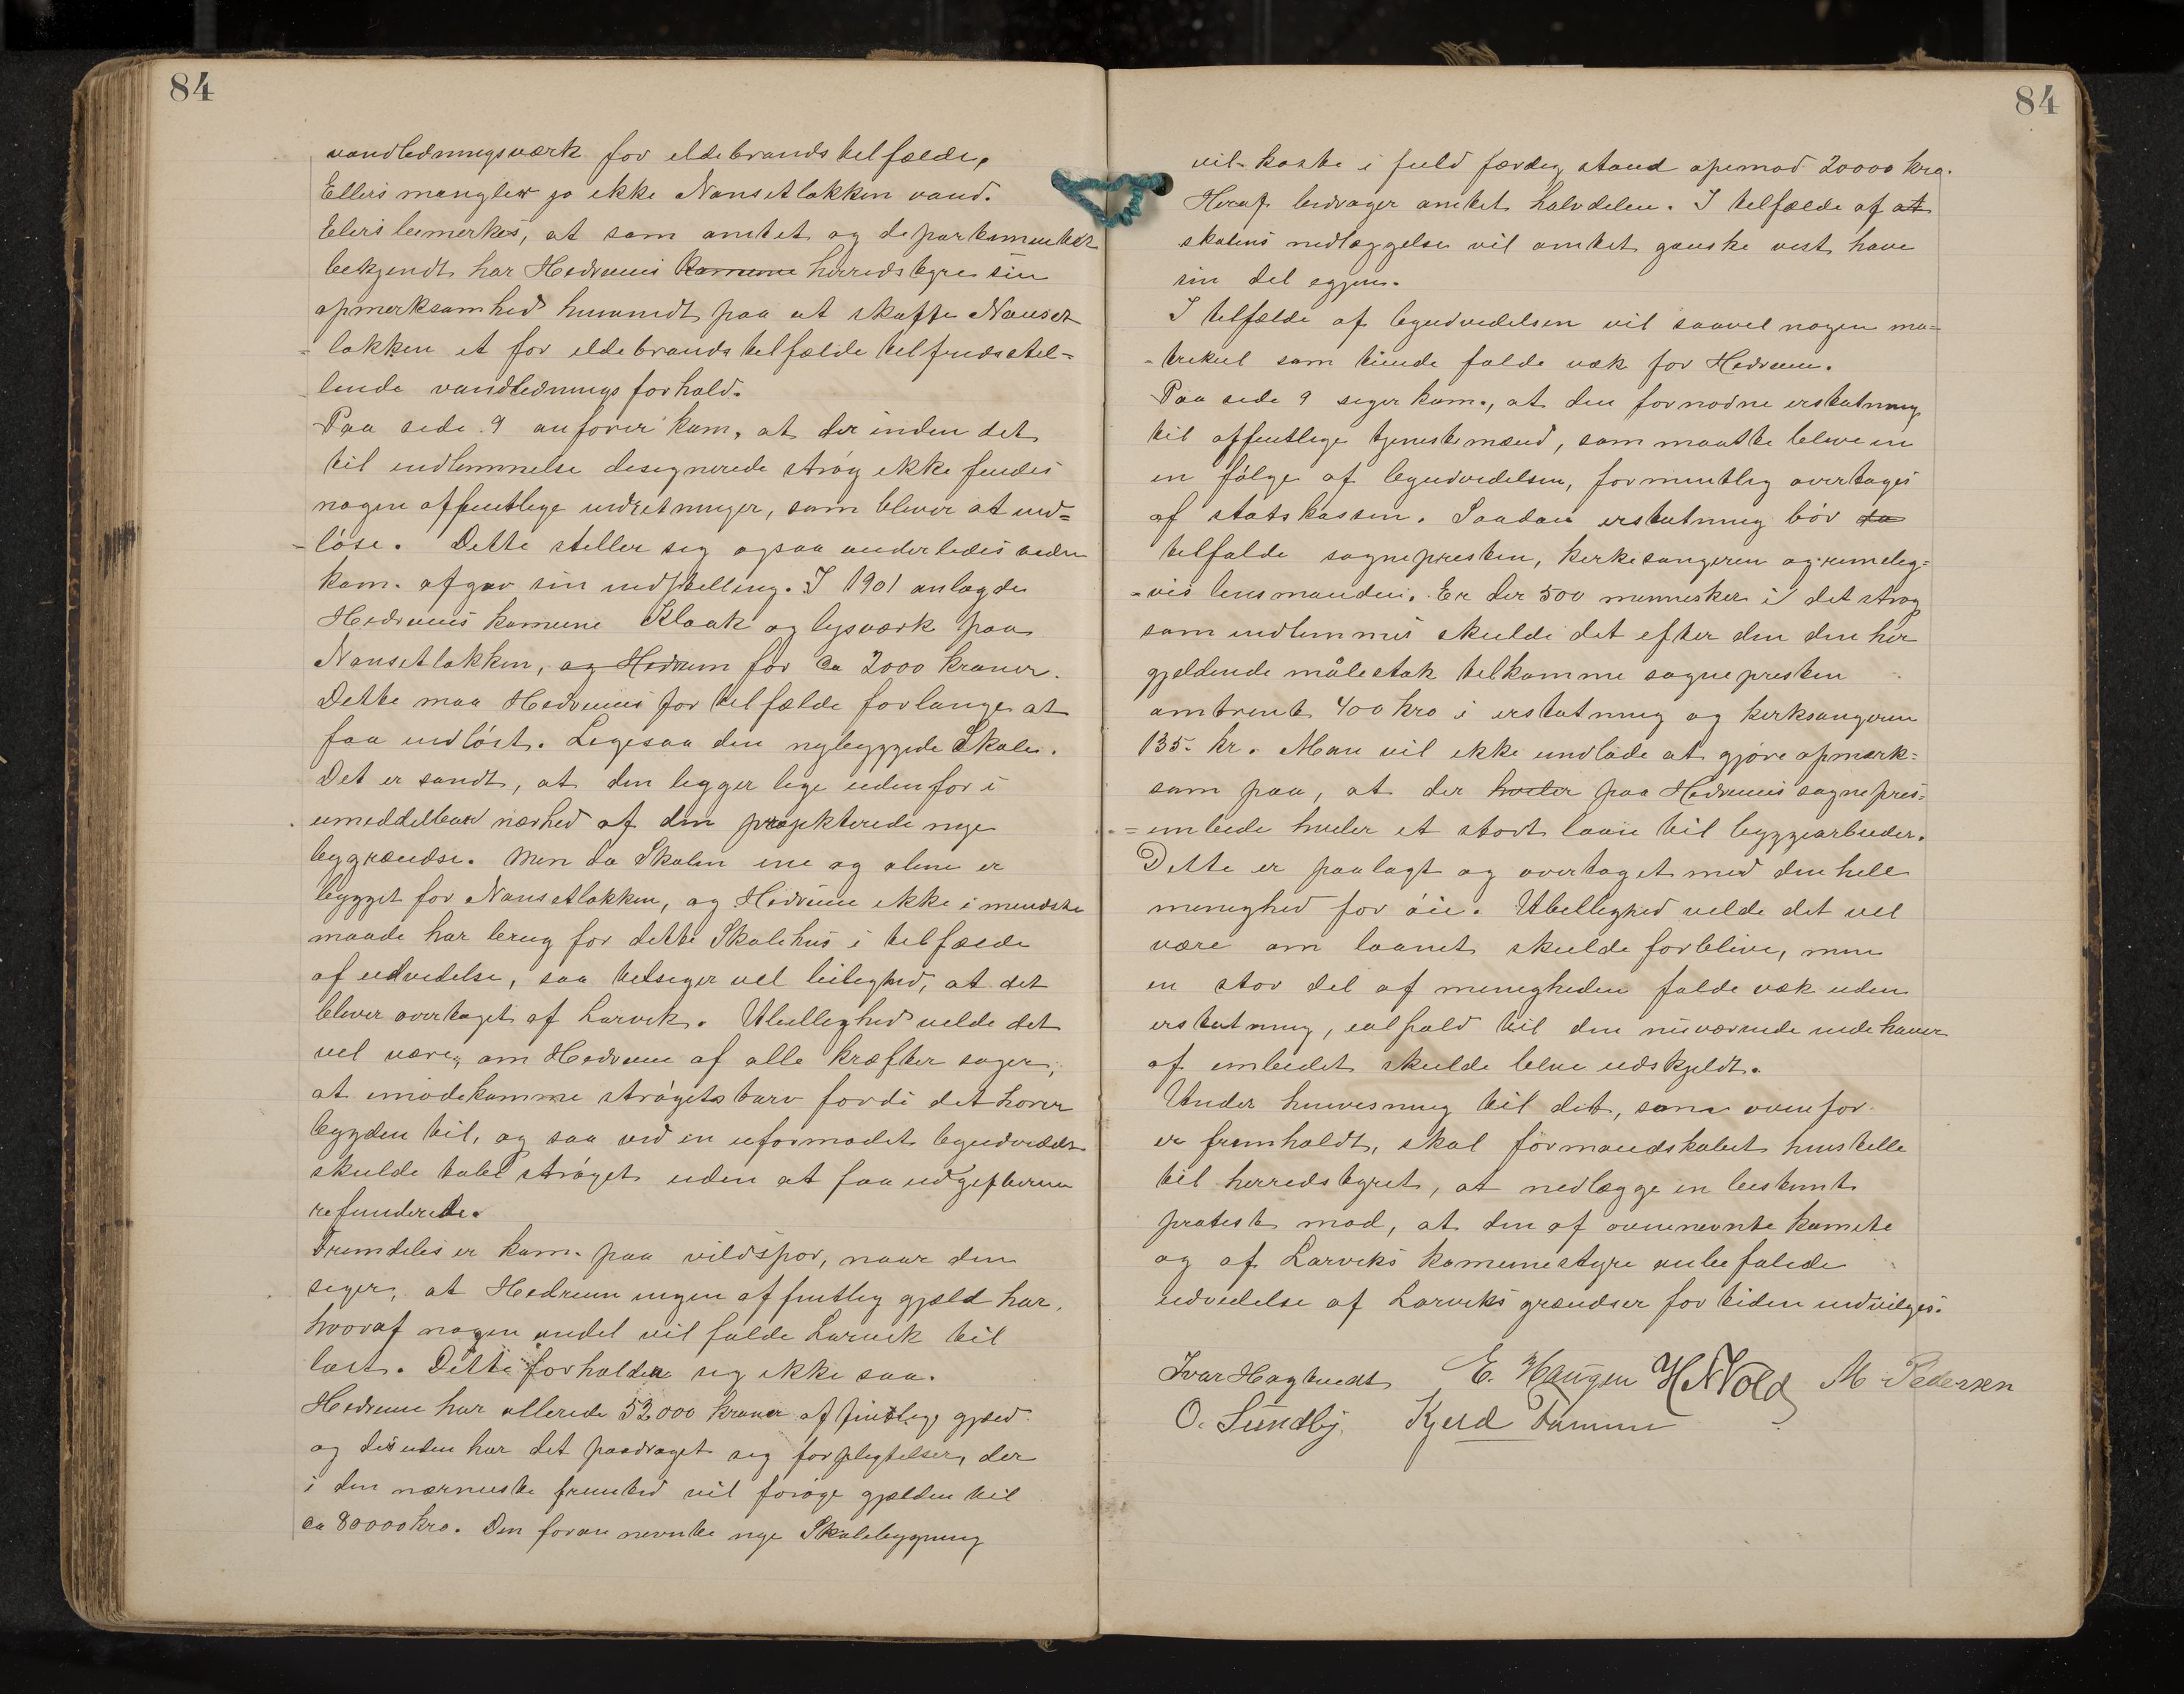 84
vandledningsværk for eldebrandstelfælde,
Ellers mangler jo ikke Nansetløkken vand.
Elers bemerkes, at som amtet og departementet
bekjendt har Hedrums komune herredstyre sin
opmerksomhed henvendt paa at skaffe Nanset
=løkken et for eldebrandstelfælde telfredsstel=
lende vandlednings forhold.
Paa side 9 anfører kom. at der inden det
til indlemmelse designerede strøg ikke findes
nogen offentlige indretninger, som blever at ind=
=løse. Dette steller seg ogsaa anderledes siden
kom. afgav sin indstelling. I 1901 anlagde
Hedrums komune Kloak og lysværk paa
Nansetløkken, og Hedrum for ca 2000 kroner.
Dette maa Hedrums for telfælde forlange at
faa indløst. Legesaa den nybyggede Skole.
Det er sandt, at den legger lege udenfor i
umeddelbar nærhed af den projekterede nye
bygrændse. Men da Skolen ene og alene er
bygget for Nansetløkken, og Hedrum ikke i mendste
maade har brug for dette Skolehus i telfælde
af udvedelse, saa telseger vel beleghed, at det
blever overtaget af Larvek. Ubelleghed velde det
vel være, om Hedrum af alle kræfter søger,
at imødekomme strøgets tarv fordi det hører
bygden til, og saa ved en uformodet byudvedelse
skulde tabe strøget uden at faa udgefterne
refunderede.
Fremdeles er kom. paa vildspor, naar den
seger, at Hedrum ingen offentleg gjæld har,
hvoraf nogen andel vil falde Larvek til
last. Dette forholder seg ikke saa.
Hedrum har allerede 52000 kroner offentlege gjæld
og desuden har det paadraget seg forplegtelser, der
i den nærmeste fremted vil forøge gjælden til
ca 80000 kro. Den foran nevnte nye Skolebygning
84
vil koste i fuld færdeg stand opemod 20000 kro.
Heraf bedrager amtet halvdelen. I telfælde af at
skolens nedlæggelse vil amtet ganske vest have
sin del egjen.
I telfælde af byudvedelsen vil saavel nogen ma=
=trekul som tiende falde væk for Hedrum.
Paa side 9 seger kom., at den fornødne erstatning
til offentlege tjenestemænd, som maatte bleve en
en følge af byudvedelsen, formentleg overtages
af statskassen. Saadan erstatning bør da
telfalde sognepresten, kerkesangeren og remeleg=
=vis lensmanden. Er der 500 mennesker i det strøg
som indlemmes skulde det efter den den her
gjeldende målestok telkomme sognepresten
omtrent 400 kro i erstatning og kerksangeren
135 kr. Man vil ikke undlade at gjøre opmærk=
som paa, at der hveler paa Hedrums sognepres=
=embede hveler et stort laan til byggearbeder.
Dette er paalagt og overtaget med den hele
menighed for øie. Ubelleghed velde det vel
være om laanet skulde forblive, men
en stor del af menigheden falde væk uden
erstatning, ialfald til den nuværende indehaver
af embedet skulde bleve udskjeldt.
Under henvesning til det, som ovenfor
er fremholdt, skal formandskabet henstelle
til herredstyret, at nedlægge en bestemt
protest mod, at den af ovennevnte komite
og af Larveks komunestyre anbefalede
udvedelse af Larveks grændser for tiden indvilges.
Ivar Hagtvedt E. Haugen H N Vold M Pedersen
O. Sundby. Kjerd Tammen